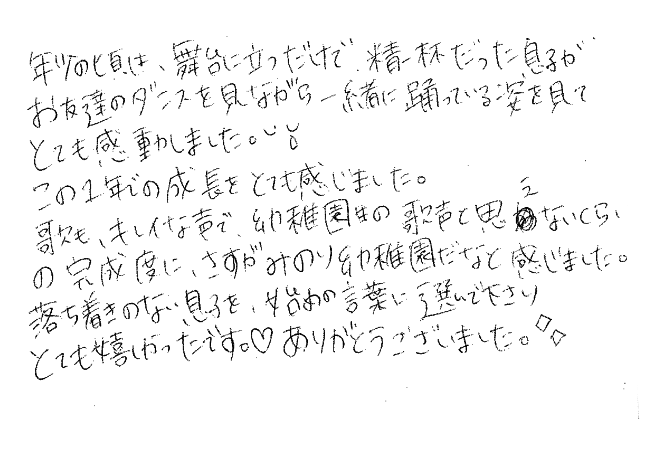 年少の頃は、舞台に立つだけで精一杯だった息子が
お友達のダンスを見ながら一緒に踊っている姿を見て
とても感動しました。
この1年での成長をとても感じました。
歌も、キレイな声で、幼稚園生の歌声と思えないくらい
の完成度に、さすがみのり幼稚園だなと感じました。
落ち着きのない息子を、始めの言葉に選んで下さり
とても嬉しかったです。♡ありがとうございました。◇◇